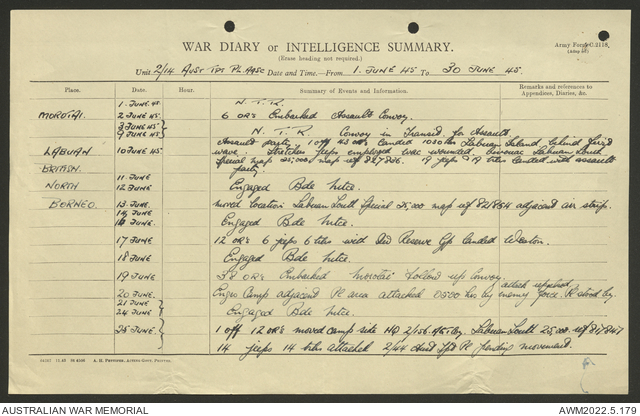 WAR DIARY OR INTELLIGENCE SUMMARY.
(Erase heading not required.)
Army Form C.2118.
Unit 2/14 Aust Tpt Pl AASC Date and Time—From 1. JUNE 45 To 30 JUNE 45.
Place. Date. Hour. Summary of Events and Information. Remarks and references to Appendices, Diaries, &c.
1. JUNE 45. N.T.R.
MOROTAI. 2 JUNE 45 6 ORs Embarked Assault Convoy.
3 JUNE 45
9 JUNE 45 N.T.R. Convoy in Transit for Assault.
LABUAN 10 JUNE 45 Assault party, 1 off 43 ORs landed 1030 hrs Labuan Island behind third
wave. Stretcher jeeps employed evac wounded, bivouac Labuan South
Special map 25,000 map ref 827836. 19 jeeps 19 tlrs landed with assault
party.
BRITISH 11 JUNE
NORTH 12 JUNE Engaged Bde
BORNEO. 13 JUNE moved location Labuan South Special 25,000 map ref 821854 adjacent air strip.
14 JUNE
16 JUNE. Engaged Bde
17 JUNE 12 ORs 6 jeeps 6 tlrs with Div Reserve Gp landed Weston.
18 JUNE Engaged Bde
19 JUNE 38 ORs Embarked Morotai follow up Convoy.
20 JUNE. Engrs Camp adjacent Pl area attacked 0500 hrs by enemy force Pl stood by.
attack repulsed
21 JUNE
24 JUNE Engaged Bde
25 JUNE 1 off 12 ORs moved camp site HQ Labuan South 25,000 ref 817847
14 jeeps 14 tlrs attached 2/44 Pl pending movement.
AUSTRALIAN WAR MEMORIAL
AWM2022.5.179